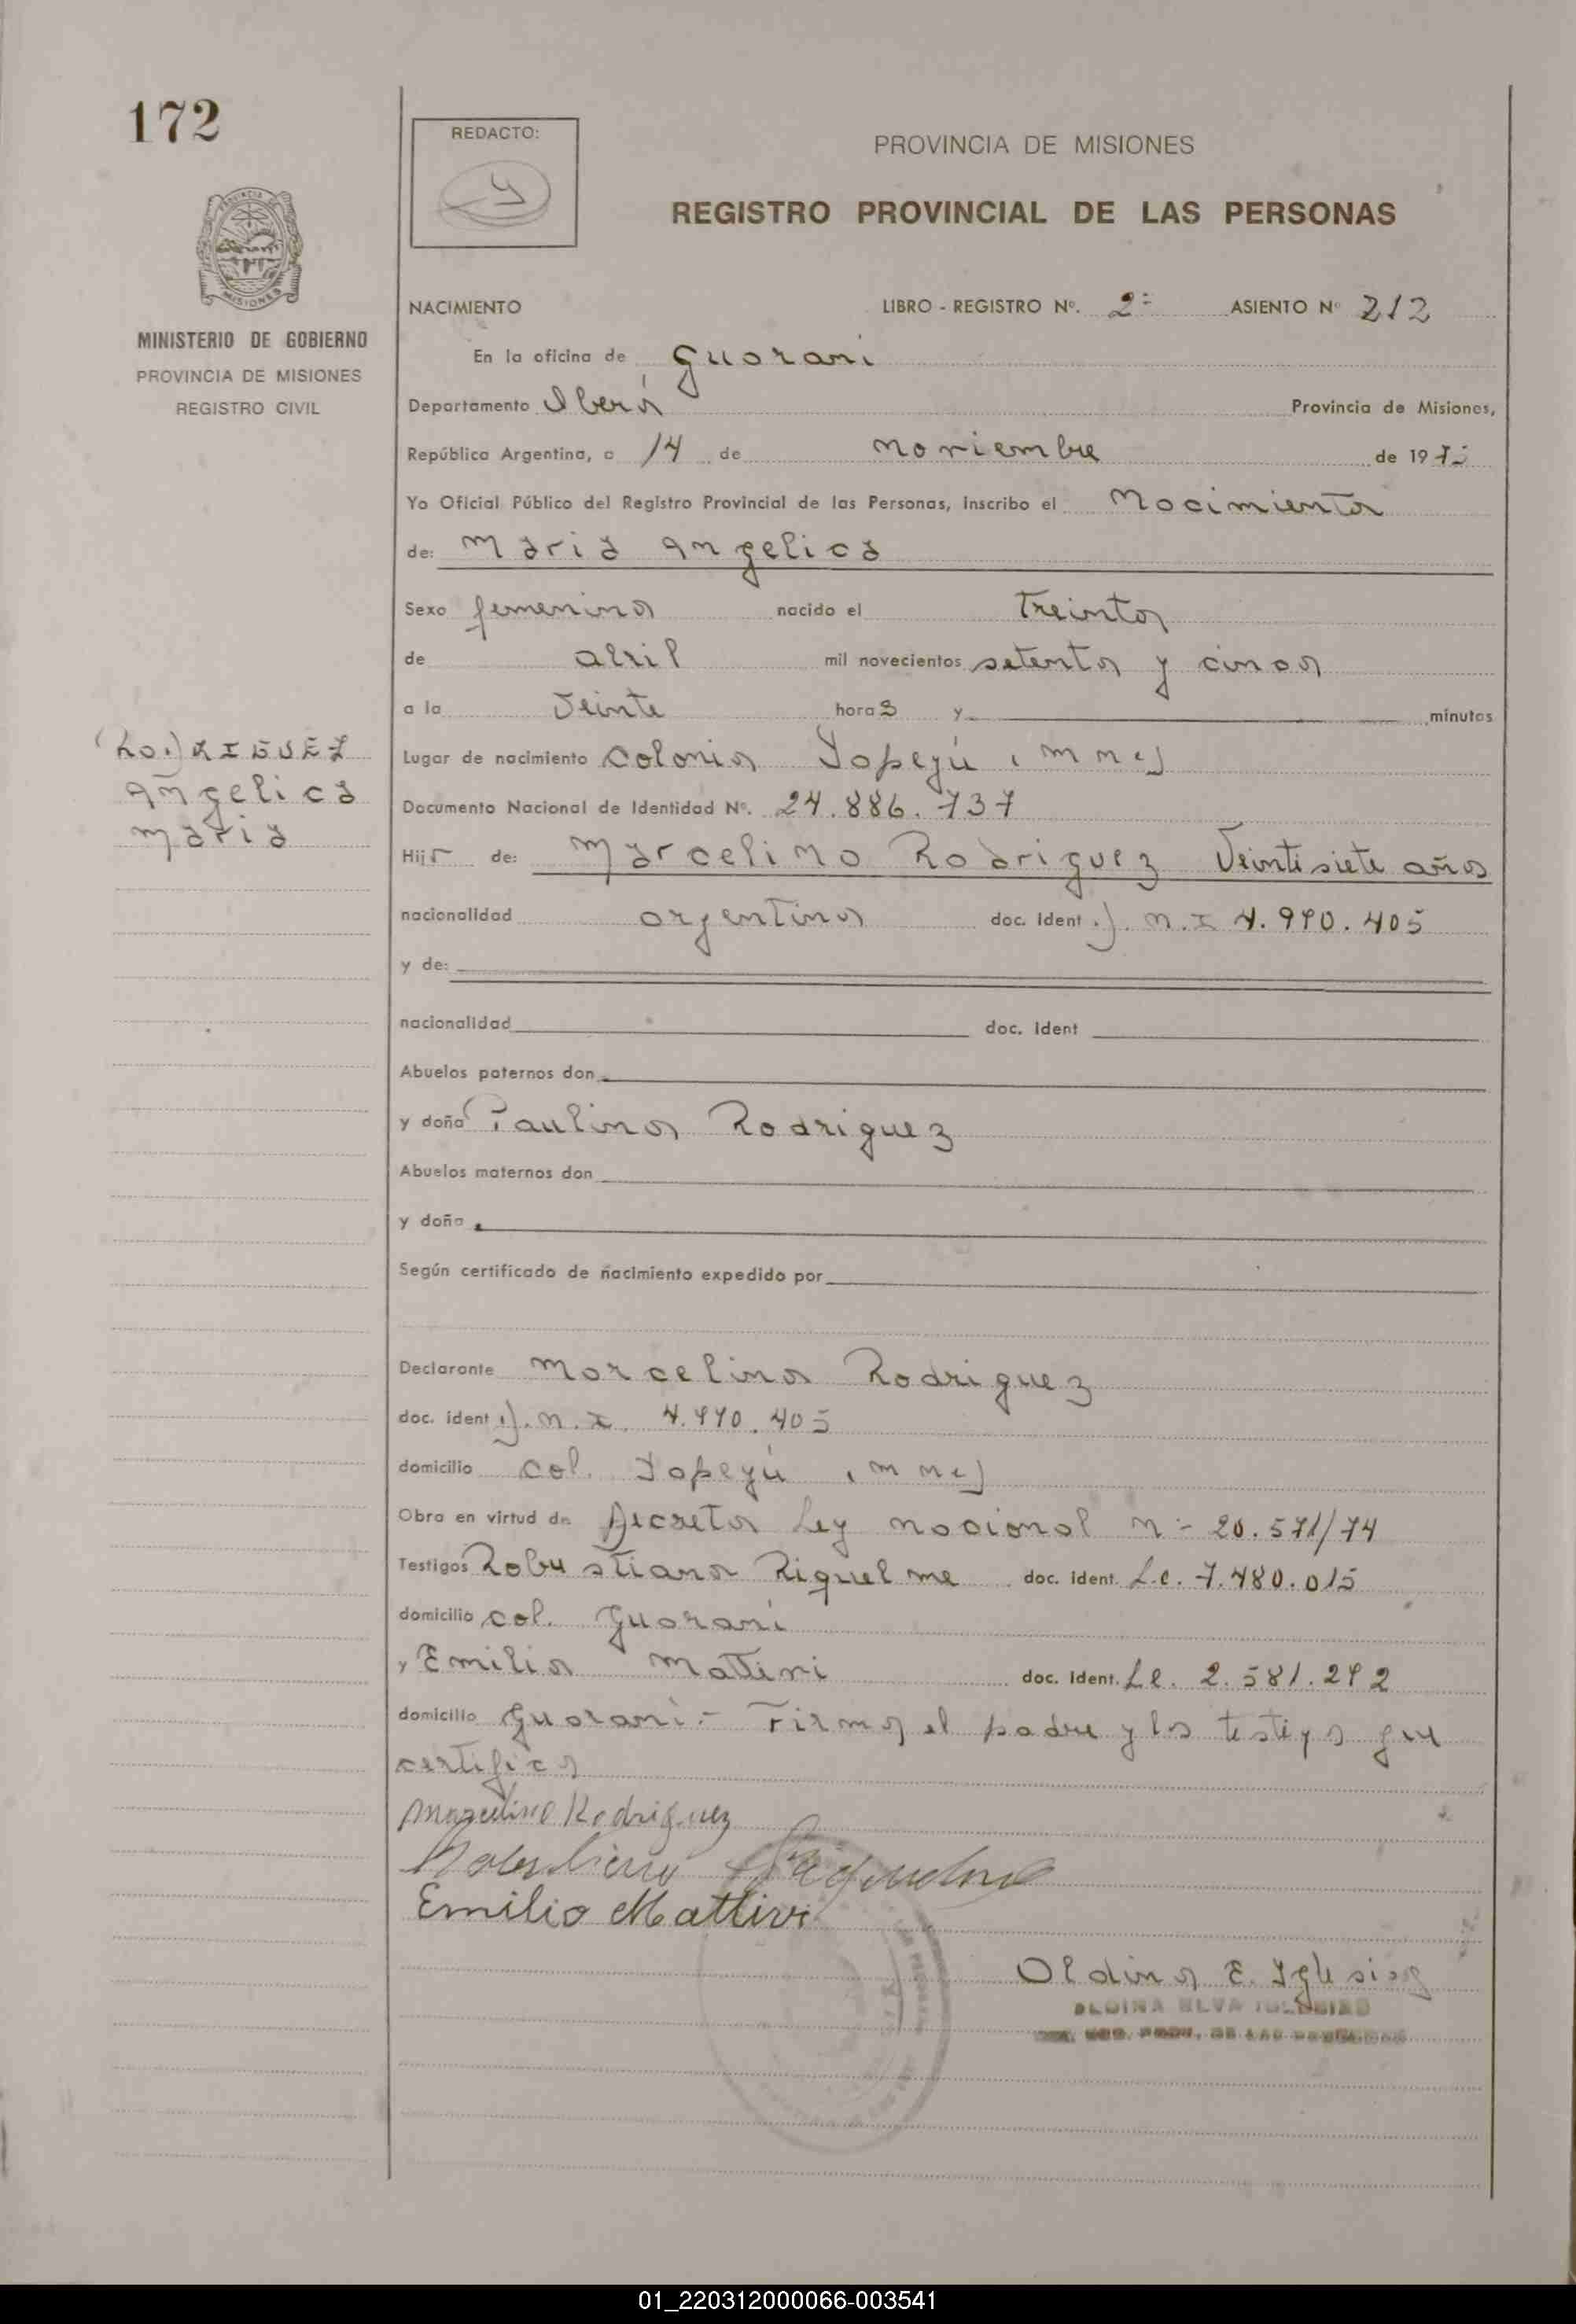 172
REDACTO:
PROVINCIA DE MISIONES
REGISTRO PROVINCIAL DE LAS PERSONAS
PROVINCIA MISIONES
MINISTERIO DE GOBIERNO
PROVINCIA DE MISIONES
REGISTRO CIVIL
NACIMIENTO LIBRO - REGISTRO Nº. 2º ASIENTO Nº 212
En la oficina de Guarani
Departamento Provincia de Misiones,
República Argentina, a 14 de noviembre de 1975
Yo Oficial Público del Registro Provincial de las Personas, inscribo el Nacimiento
de: Maria Angelica
Sexo femenino nacido el treinta
de abril mil novecientos setenta y cinco
a la veinte horas y minutos
Lugar de nacimiento Colonia Yapeyú (mnes)
Documento Nacional de Identidad Nº. 24.886.737
Hija de: Marcelino Rodriguez Veintisiete años
nacionalidad argentino doc. Ident D.N.I 4.990.405
y de:
nacionalidad doc. Ident
Abuelos paternos don
y doña Paulina Rodriguez
Abuelos maternos don
y doña
Según certificado de nacimiento expedido por
Declarante Marcelino Rodriguez
doc. ident D.N.I. 4.990.405
domicilio col. Yapeyú (mnes)
Obra en virtud de Decreto Ley nacional nº 20.571/74
Testigos Robustiano Riquelme doc. ident. L.e. 7.480.015
domicilio col. Guarani
y Emilio Mattivi doc. Ident. Le. 2.581.292
domicilio Guarani.- Firma el padre y los testigos que
certifico
Marcelino Rodriguez
Robustiano Riquelme
Emilio Mattivi
Aldina E. Iglesias
ALDINA ELVA IGLESIAS
REG. PROV. DE LAS PERSONAS
Angelica
Maria
01_220312000066-003541